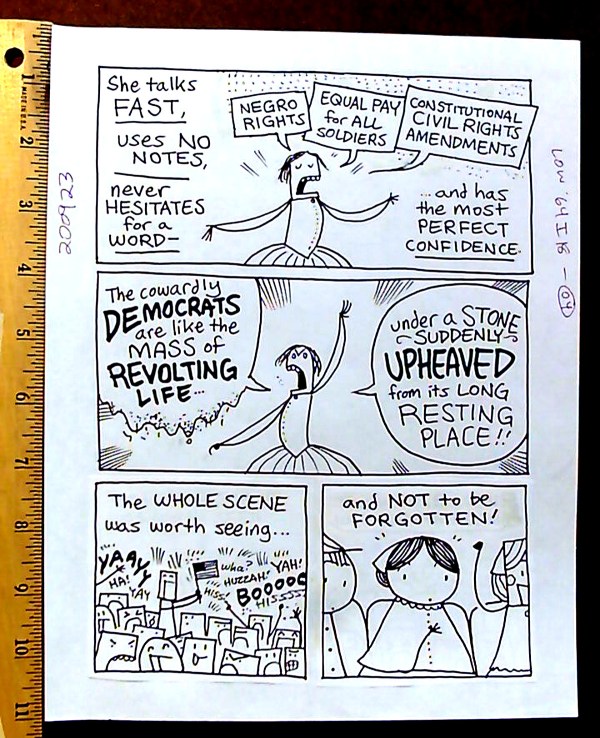 She talks
FAST,
uses NO
NOTES,
never
HESITATES
for a
WORD—
NEGRO
RIGHTS
EQUAL PAY
for ALL
SOLDIERS
CONSTITUTIONAL
CIVIL RIGHTS
AMENDMENTS
...and has
the most
PERFECT
CONFIDENCE.
The cowardly
DEMOCRATS
are like the
MASS of
REVOLTING
LIFE...
under a STONE
~SUDDENLY~
UPHEAVED
from its LONG
RESTING
PLACE!!
The WHOLE SCENE
was worth seeing...
YAAYYY
HA!
YAY
wha?
HUZZAH!
HISS
YAH!
BOOOOO
HISSSSS
and NOT to be
FORGOTTEN!
200923
1
2
3
4
5
6
7
8
9
10
11